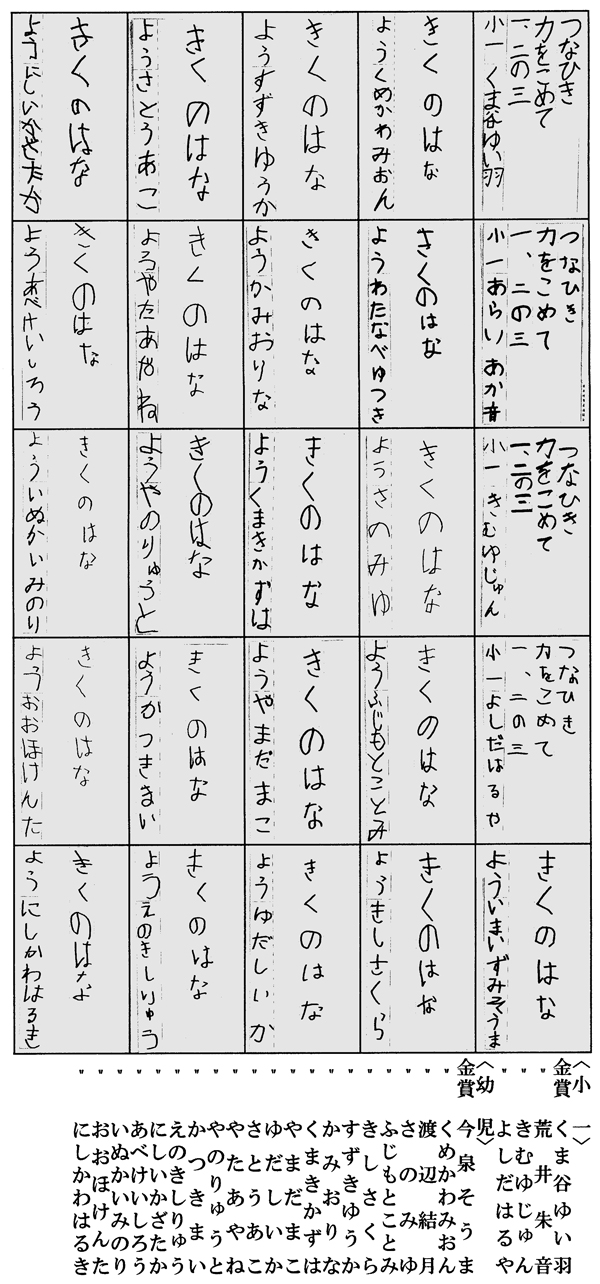 つなひき
力をこめて
一、二の三
小一くま谷ゆい羽
つなひき
力をこめて
一、二の三
小一あらいあか音
つなひき
力をこめて
一、二の三
小一きむゆじゅん
つなひき
力をこめて
一、二の三
小一よしだはるや
きくのはな
よういまいずみそうま
きくのはな
ようくめかわみおん
きくのはな
ようわたなべゆつき
きくのはな
ようさのみゆ
きくのはな
ようふじもとことみ
きくのはな
ようきしさくら
きくのはな
ようすずきゆうか
きくのはな
ようかみおりな
きくのはな
ようくまきかずは
きくのはな
ようやまだまこ
きくのはな
ようゆだしいか
きくのはな
ようさとうあこ
きくのはな
ようやたあやね
きくのはな
ようやのりゅうと
きくのはな
ようかつきまい
きくのはな
ようえのきしりゅう
きくのはな
ようにしいかざたか
きくのはな
ようあべけいしろう
きくのはな
よういぬかいみのり
きくのはな
ようおおほけんた
きくのはな
ようにしかわはるき
〈小一〉
金賞 くま谷ゆい羽
〃 荒井朱音
〃 きむゆじゅん
〃 よしだはるや
〈幼児〉
金賞 今泉そうま
〃 くめかわみおん
〃 渡辺結月
〃 さのみゆ
〃 ふじもとことみ
〃 きしさくら
〃 すずきゆうか
〃 かみおりな
〃 くまきかずは
〃 やまだまこ
〃 ゆだしいか
〃 さとうあこ
〃 やたあやね
〃 やのりゅうと
〃 かつきまい
〃 えのきしりゅう
〃 にしいかざたか
〃 あべけいしろう
〃 いぬかいみのり
〃 おおほけんた
〃 にしかわはるき